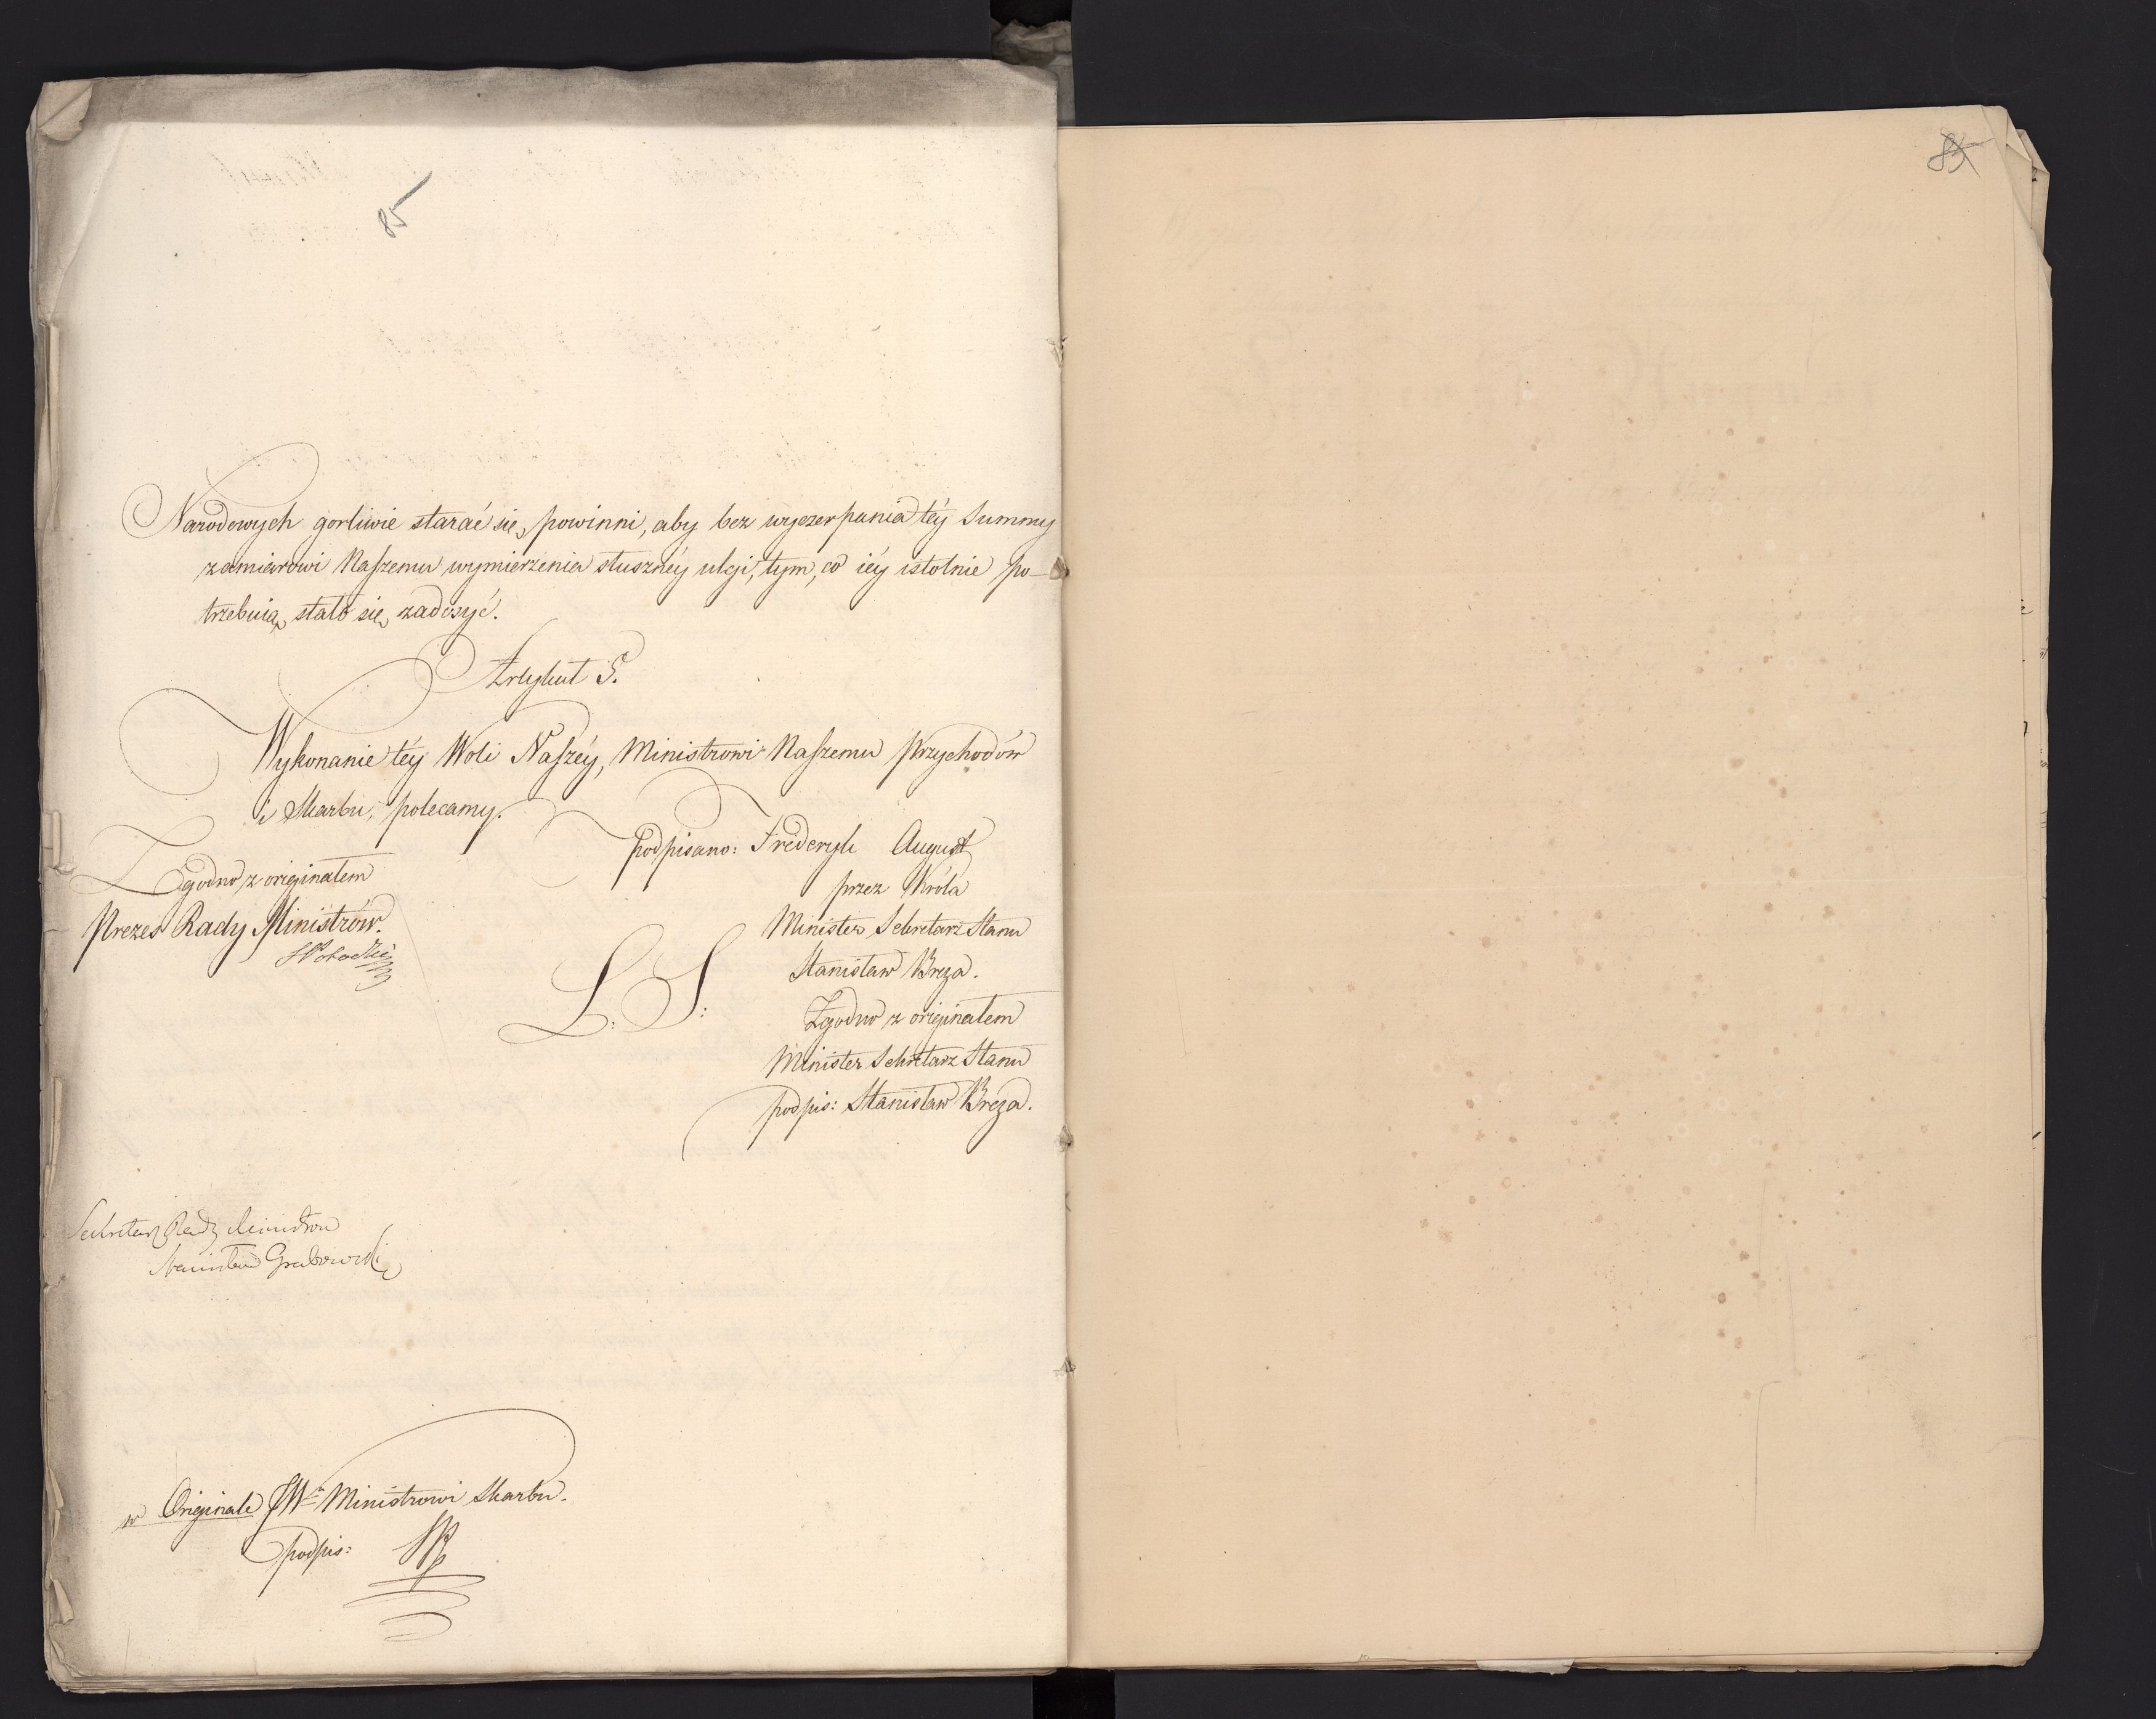 85
Narodowych gorliwie starać się powinni, aby bez wyczerpania téy Summy
zamiarowi Naszemu wymierzenia słusznéy ulgi, tym, co iéy istotnie po-
trzebuią, stało się zadosyć.
Artykuł 5.
Wykonanie téy Woli Naszéy, Ministrowi Naszemu Przychodów
i Skarbu, polecamy.
podpisano: Frederyk August
przez Króla
Minister Sekretarz Stanu
Stanisław Breza.
L: S:
Zgodno z originałem
Minister Sekretarz Stanu
podpis: Stanisław Breza.
Zgodno z originałem
Prezes Rady Ministrów.
S Potocki
Sekretarz Rady Ministrow
Stanisław Grabowski
w Originale JW Ministrowi Skarbu.
podpis:
85